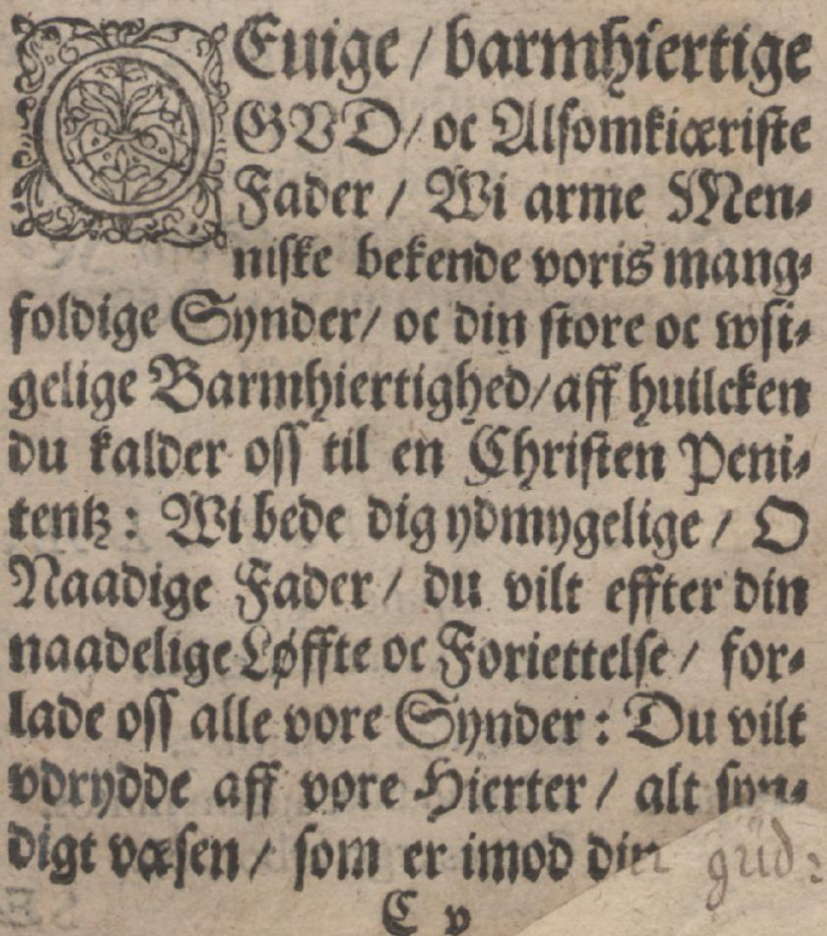 O Euige / barmhiertige
GVD / oc Alsomkiæriste
Fader / Wi arme Men-
niske bekende voris mang-
foldige Synder / oc din store oc wsi-
gelige Barmhiertighed / aff huilcken
du kalder oss til en Christen Peni-
tentz : Wi bede dig ydmygelige / O
Naadige Fader / du vilt effter din
naadelige Løffte oc Foriettelse / for-
lade oss alle vore Synder : Du vilt
vdrydde aff vore Hierter / alt syn-
digt væsen / som er imod din güd:
C v